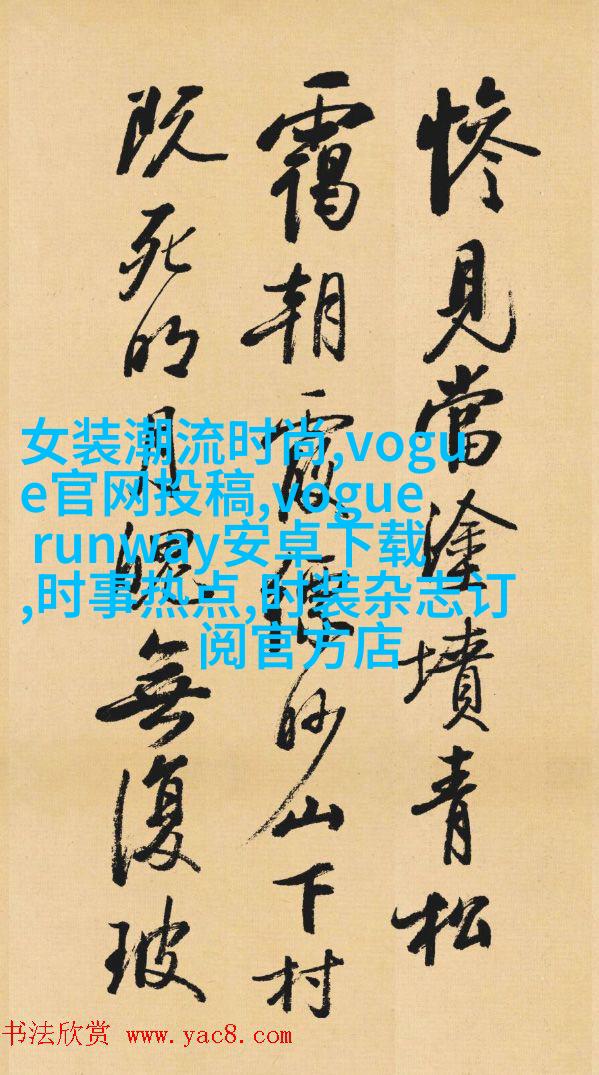 惨見當塗墳青松
靄朝霞縹眇山下村
既死明月魄無復玻
女装潮流时尚,vogu
e官网投稿,vogue
runway安卓下载
,时事热点,时装杂志订
阅官方店
书法欣赏 www.yac8.com